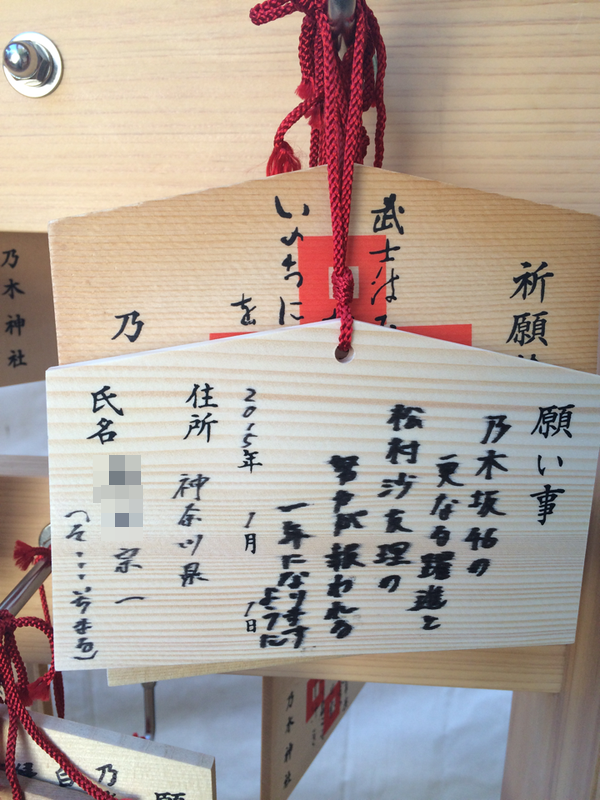 願い事
乃木坂46の
更なる躍進と
松村沙友理の
努力が報われる
一年になります
ように
2015年 1月 1日
住所 神奈川県
氏名 宗一
祈願
武士は
いのちに
を
乃
乃木神社
乃木神社
乃
願